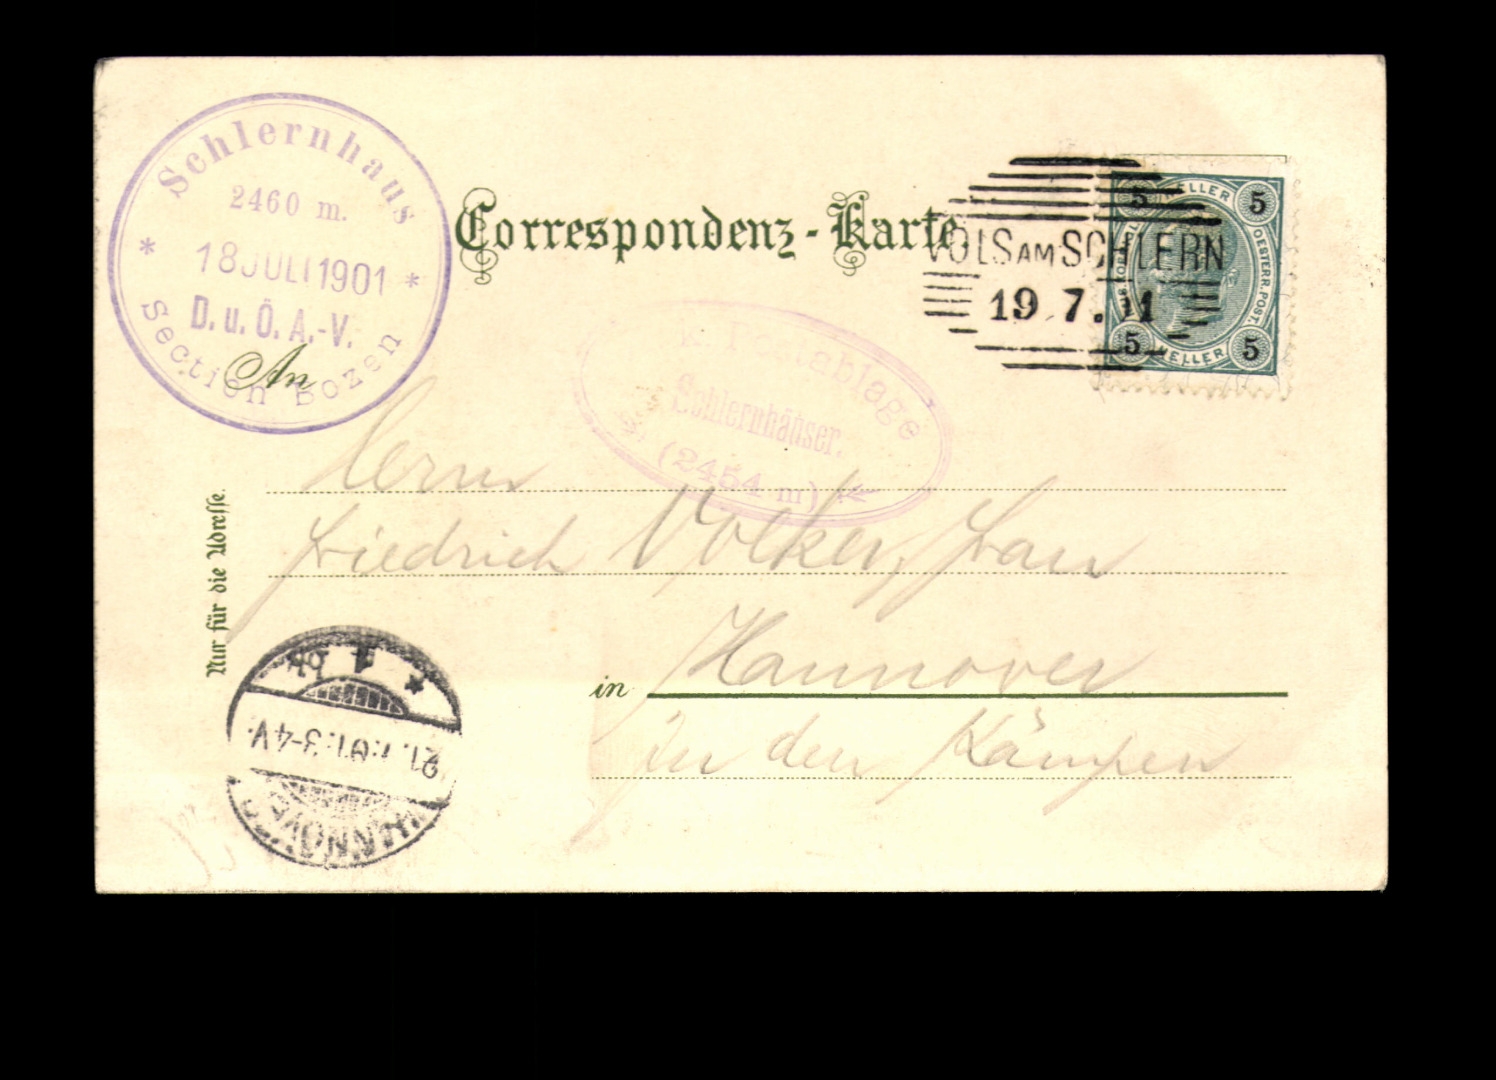 Schlernhaus
2460 m.
18 JULI 1901
D. u. Ö. A.-V.
Section Bozen
Correspondenz-Karte.
VÖLS AM SCHLERN
19 7. 11
5 HELLER 5
OESTERR. POST.
5 HELLER 5
k. Postablage
Schlernhäuser.
(2454 m)
An
Herrn
Friedrich Völker,
Hannover
in
in den Kämpen
Nur für die Adresse.
21. 7. 01. 3-4 V.
HANNOVER